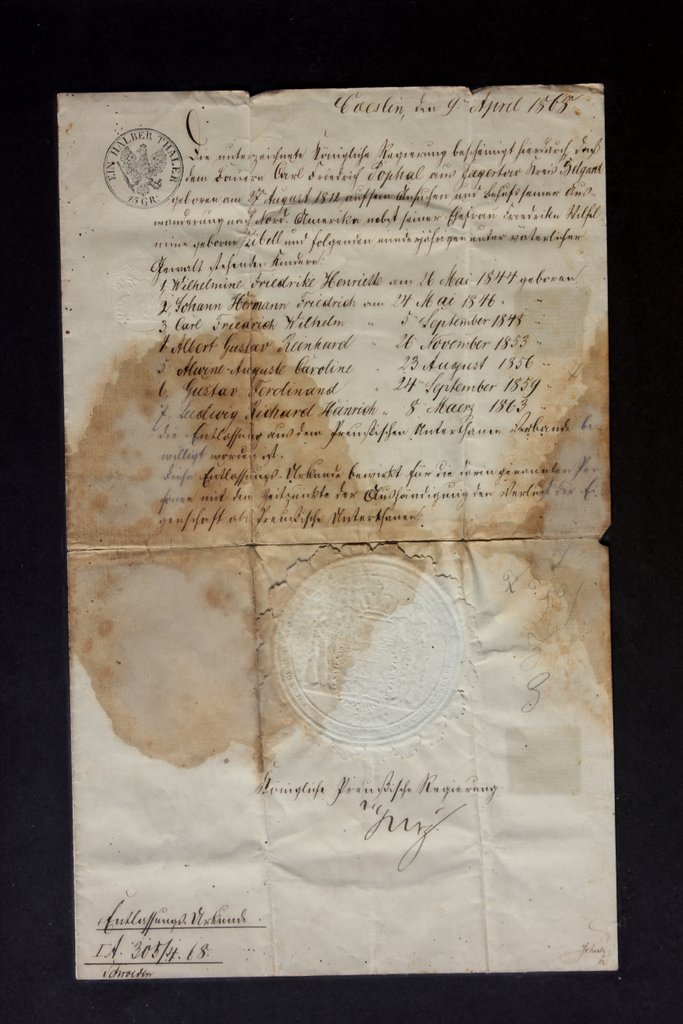 EIN HALBER THALER
15 GR.
Coeslin, den 9ten April 1868
Die unterzeichnete Königliche Regierung bescheinigt hierdurch, daß
dem Bauern Carl Friedrich Tophal aus Jagertow Kreis Belgard
geboren am 27 August 1812 auf sein Ansuchen und Behufs seiner Aus-
wanderung nach Nord-Amerika nebst seiner Ehefrau Friedrike Wilhel-
mine geborne Zibell und folgenden minderjährigen unter väterlicher
Gewalt stehenden Kindern:
1, Wilhelmine Friedrike Henriette am 26 Mai 1844 geboren
2, Johann Hermann Friedrich am 24 Mai 1846.
3, Carl Friedrich Wilhelm " 5 September 1848
4 Albert Gustav Reinhard " 26 November 1853 "
5 Alwine Auguste Caroline " 23 August 1856 "
6, Gustav Ferdinand " 24 September 1859 "
7, Ludwig Richard Heinrich " 8 Maerz 1863 "
die Entlassung aus dem Preußischen Unterthanen-Verbande be-
willigt worden ist.
Diese Entlassungs-Urkunde bewirkt für die darin genannten Per-
sonen mit dem Zeitpunkte der Aushändigung den Verlust der Ei-
genschaft als Preußische Unterthanen.
Königliche Preußische Regierung.
Entlassungs-Urkunde.
I A. 305/4. 68.